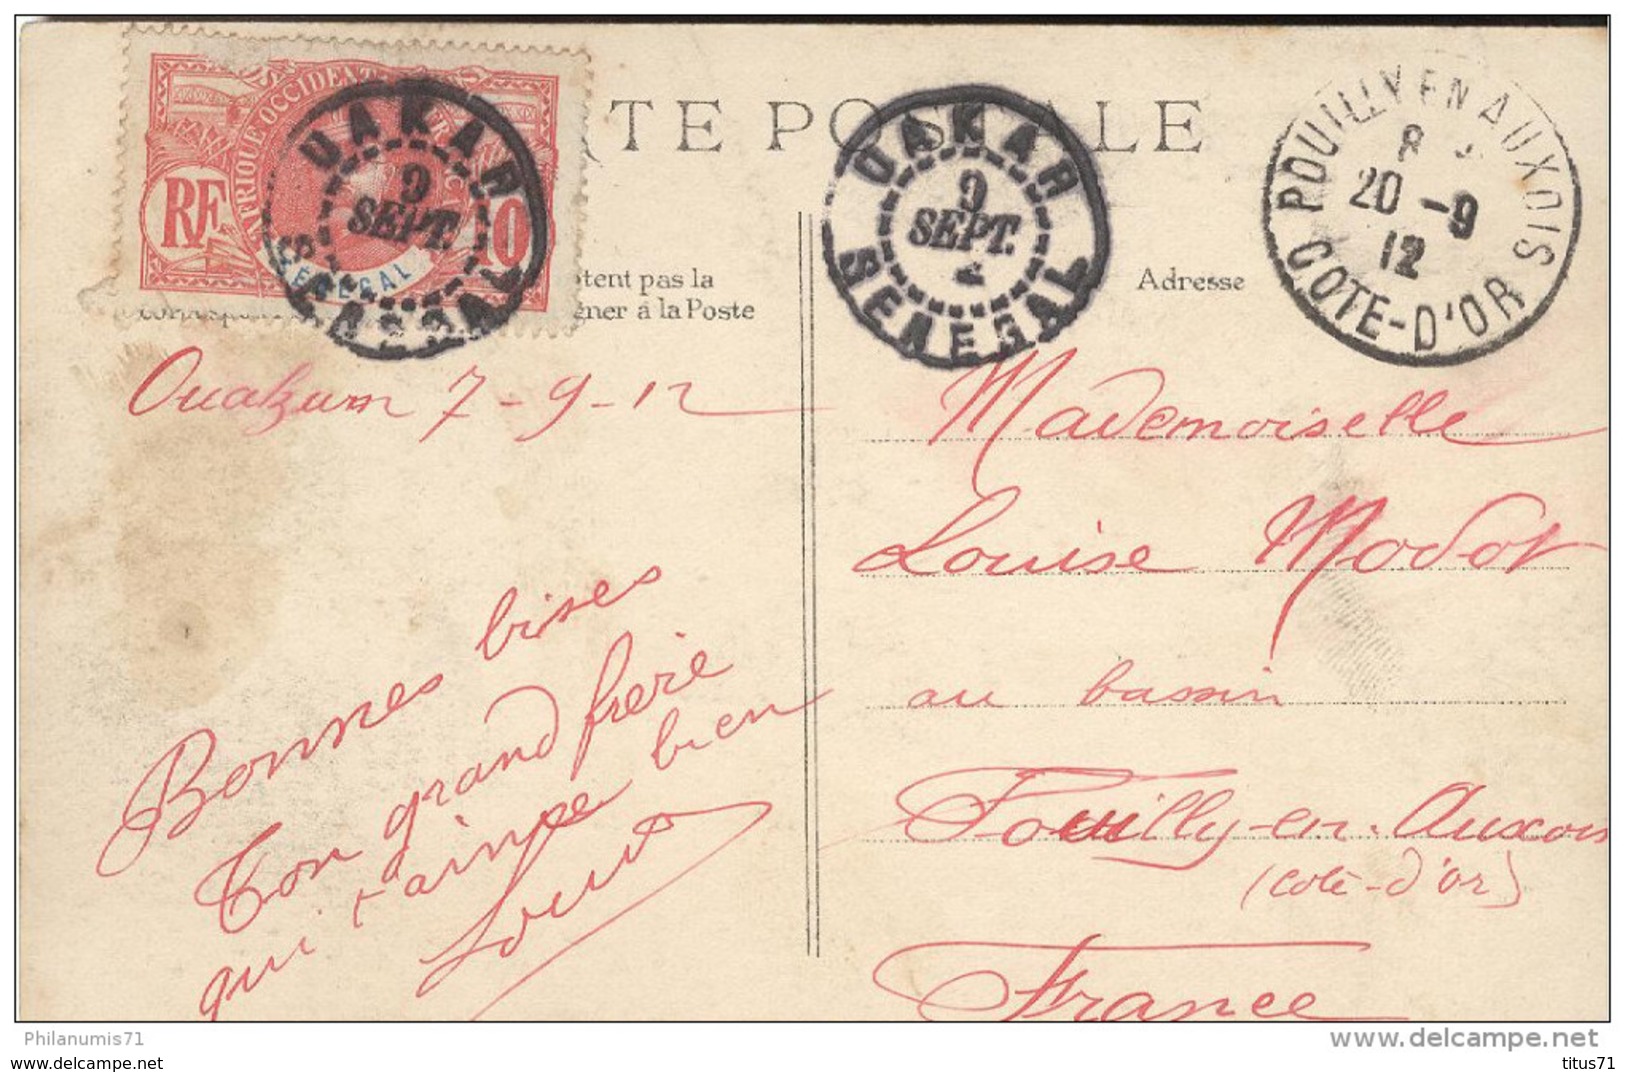 CARTE POSTALE
AFRIQUE OCCIDENTALE FRANÇAISE
RF
10
SÉNÉGAL
DAKAR
9
SEPT.
SENEGAL
DAKAR
9
SEPT.
SENEGAL
POUILLY EN AUXOIS
20 -9
12
COTE-D'OR
tent pas la
gner à la Poste
Adresse
Ouakam 7-9-12
Mademoiselle
Louise Modot
au bassin
Pouilly-en-Auxois
(Cote-d'or)
France
Bonnes bises
Ton grand frere
qui t'aime bien
Philanumis71
www.delcampe.net
delcampe.net
titus71